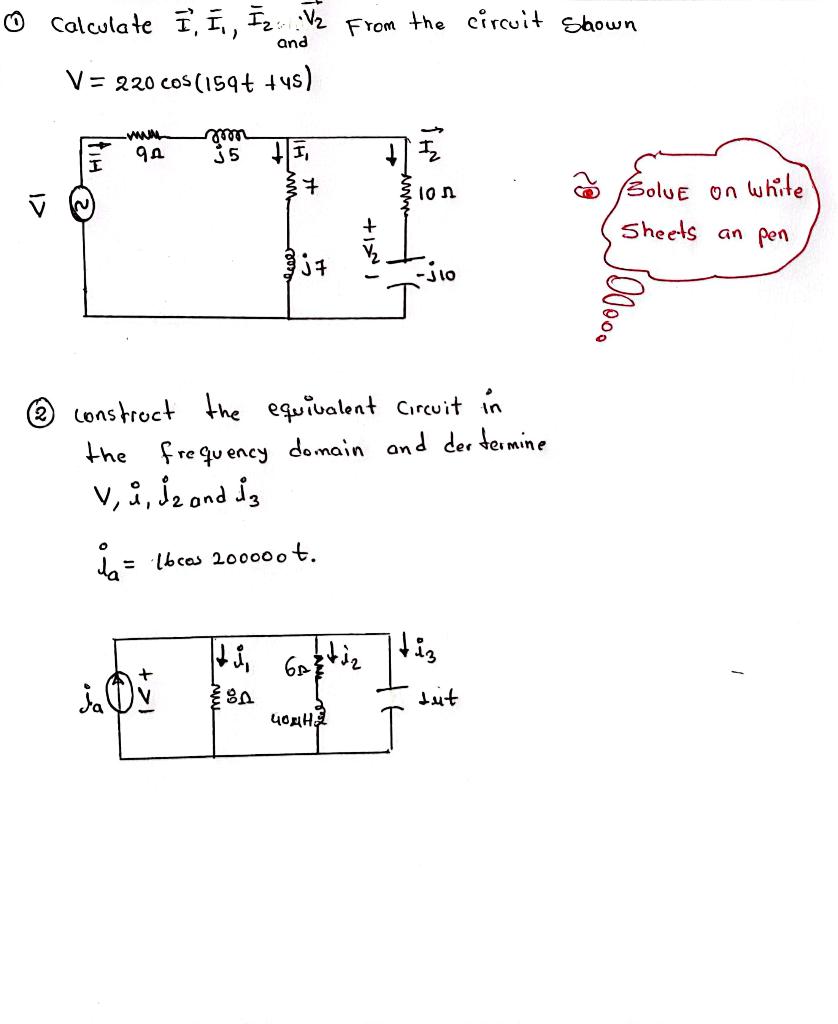 ① Calculate I, I₁, I₂ and V₂ From the circuit shown
V = 220 cos(159t +45)
I
9Ω
j5
I₁
I₂
7
10Ω
V
+
V₂
-
j7
-j10
Solve on white
sheets an pen
② construct the equivalent circuit in
the frequency domain and dertermine
V, i, i₂ and i₃
ia = 16cos 200000t.
i₁
6Ω
i₂
i₃
ia
+
V
-
8Ω
40μH